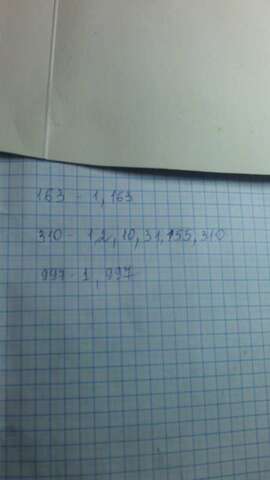 163 - 1, 163
310 - 1 2, 10, 31, 155, 310
997 - 1, 997